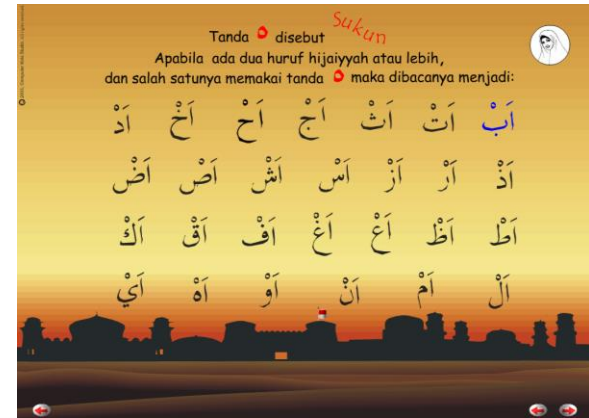 Tanda ه disebut Sukun
Apabila ada dua huruf hijaiyyah atau lebih,
dan salah satunya memakai tanda ه maka dibacanya menjadi:
اَبْ اَتْ اَثْ اَجْ اَحْ اَخْ اَدْ
اَذْ اَرْ اَزْ اَسْ اَشْ اَصْ اَضْ
اَطْ اَظْ اَعْ اَغْ اَفْ اَقْ اَكْ
اَلْ اَمْ اَنْ اَوْ اَهْ اَيْ